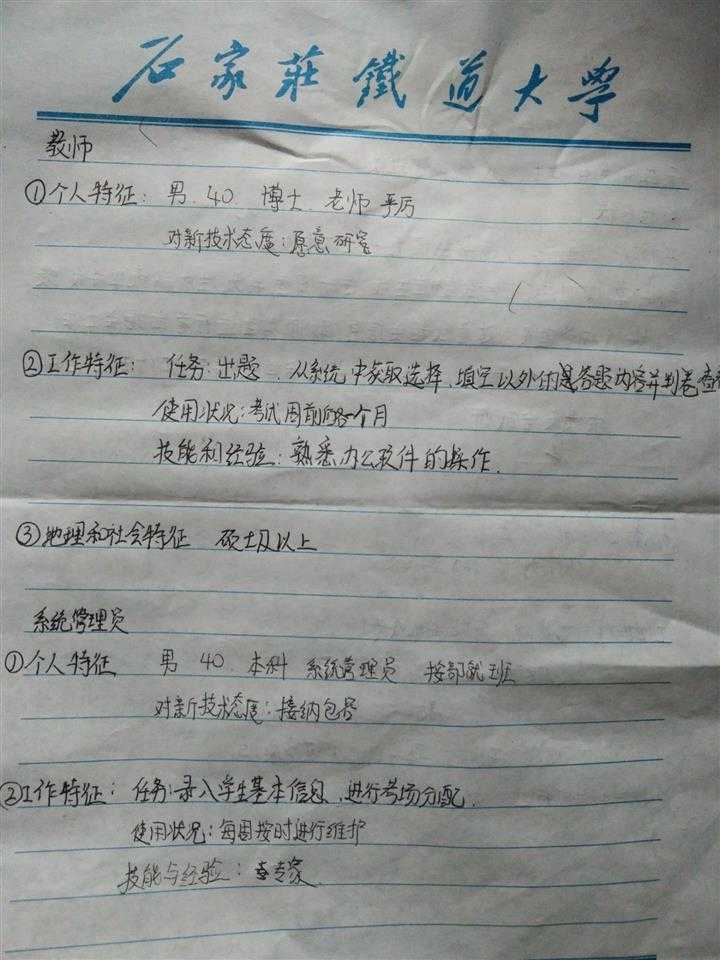 石家莊鐵道大學
教师
①个人特征: 男. 40 博士 老师 严厉
对新技术态度: 愿意研究
②工作特征: 任务: 出题. 从系统中获取选择、填空以外的答题内容并判卷
使用状况: 考试周前后各一个月
技能和经验: 熟悉办公软件的操作.
③地理和社会特征 硕士及以上
系统管理员
①个人特征 男 40 本科 系统管理员 按部就班
对新技术态度: 接纳包容
②工作特征: 任务: 录入学生基本信息, 进行考场分配.
使用状况: 每周按时进行维护
技能与经验: 专家.